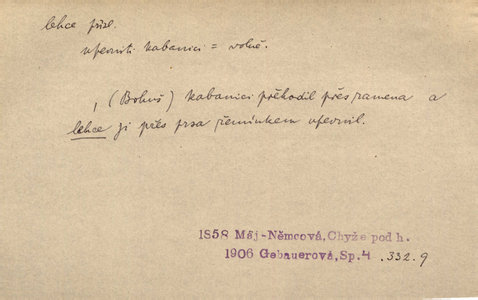 lehce přísl.
upevniti kabanici = volně.
, (Bohuš) kabanici přehodil přes ramena a
lehce ji přes prsa řemínkem upevnil.
1858 Máj-Němcová, Chyže pod h.
1906 Gebauerová, Sp. 4 . 332. 9